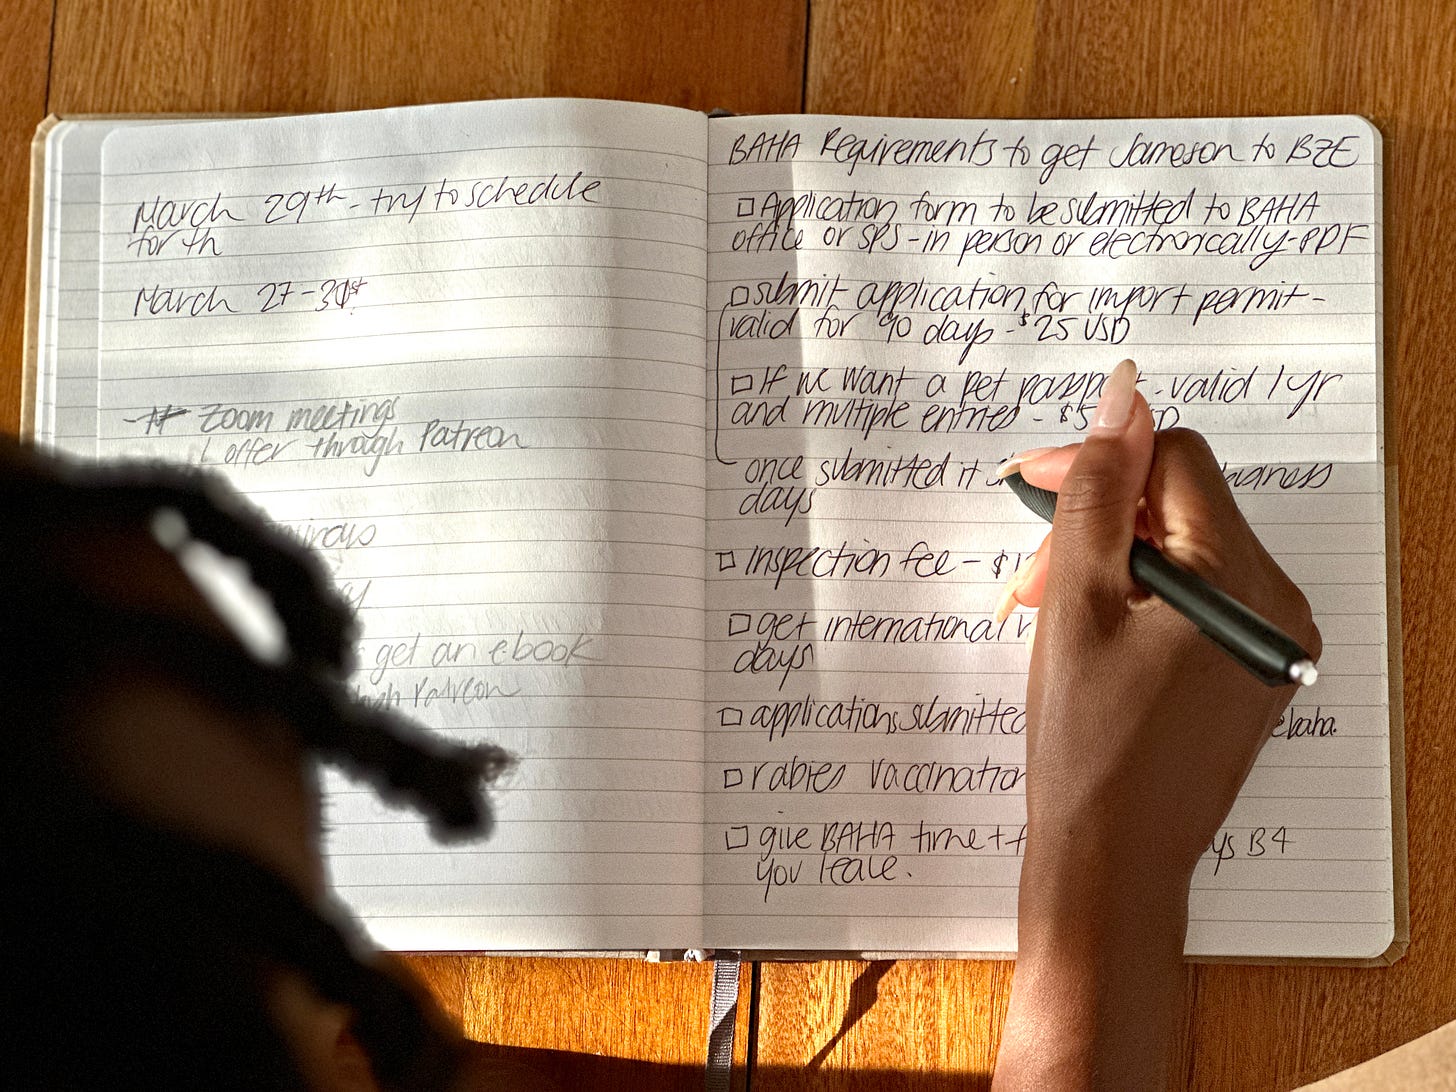 March 29th - try to schedule
for th
March 27-30st
Zoom meetings
I offer through Patreon
get an ebook
Patreon
BAHA Requirements to get Jameson to BZE
□ Application form to be submitted to BAHA
office or SPS - in person or electronically - PDF
□ submit application for import permit -
valid for 90 days - $25 USD
□ If we want a pet passport - valid 1 yr
and multiple entries -
once submitted it business
days
□ Inspection fee -
□ get international
days
□ applications submitted
□ rabies vaccination
□ give BAHA time + B4
you leave.